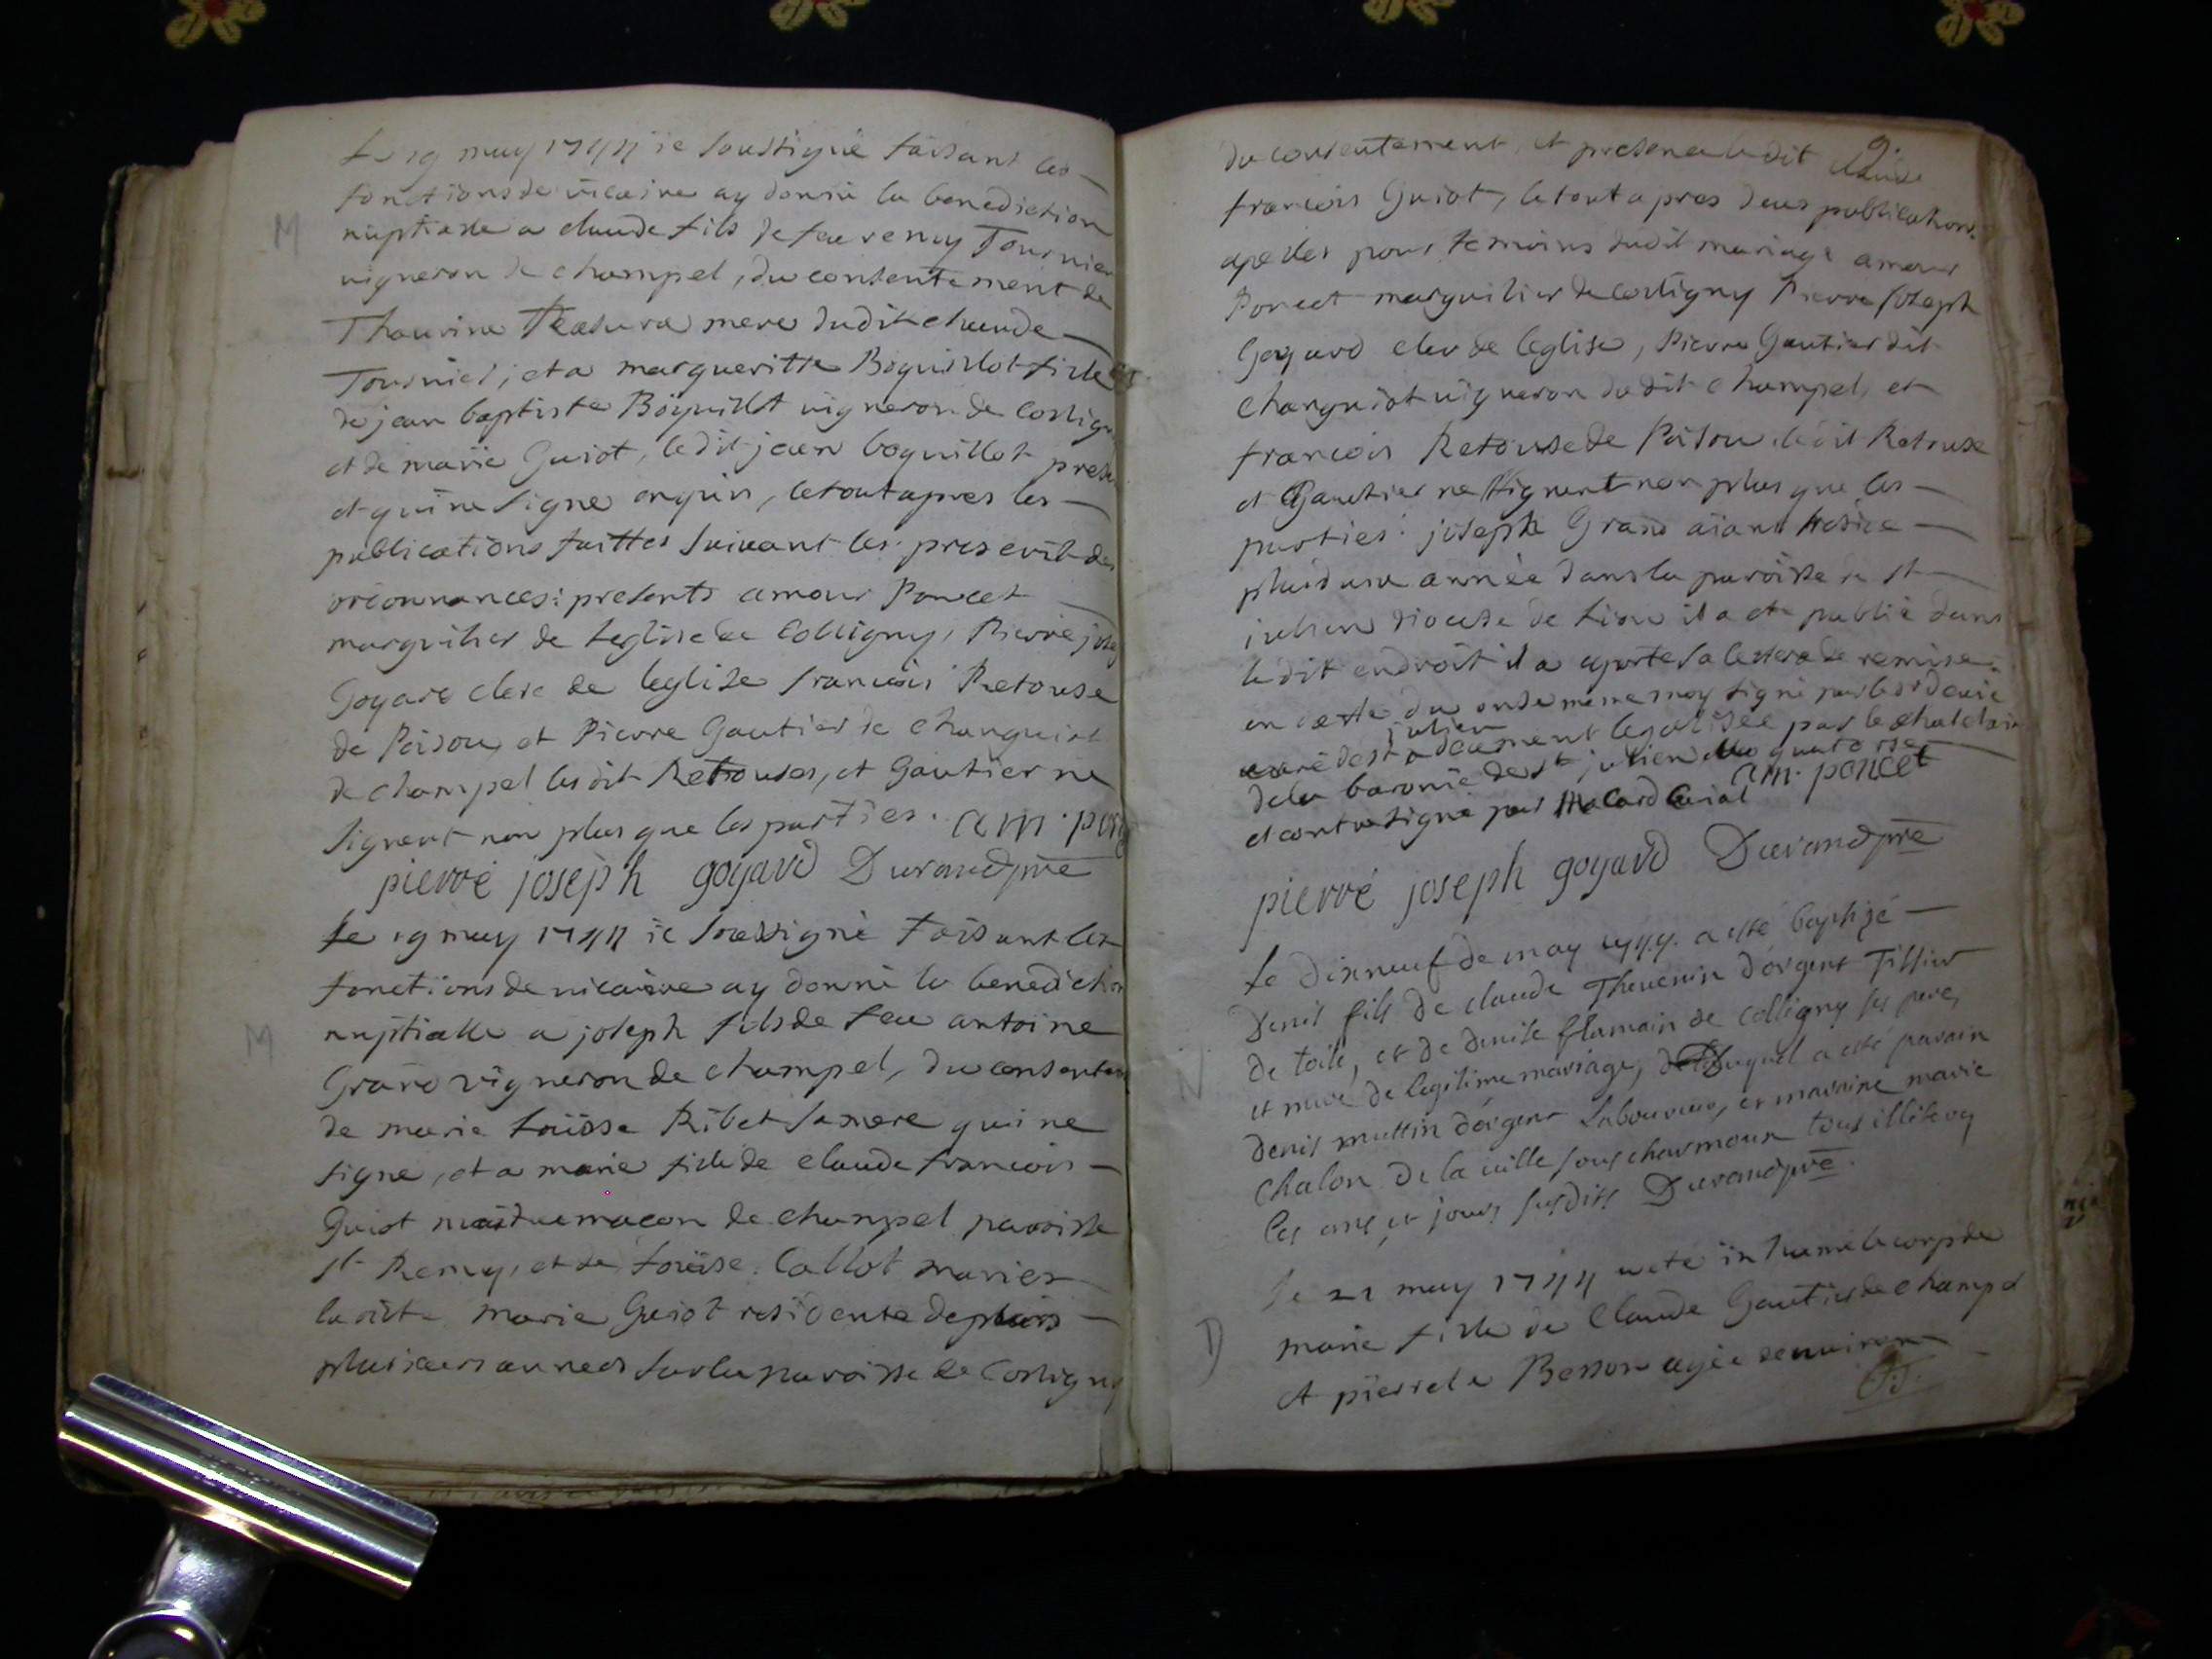 Le 19 may 1744 ie soussigné faisant les
fonctions de vicaire ay donné la benediction
nuptialle a claude fils de feu remy Tournier
vigneron de champel, du consentement de
mere dudit claude
Tournier, et a margueritte Boquillot fille
de jean baptiste Boquillot vigneron de Colligny
et de marie Guiot, le dit jean boquillot
et qui ne signe enquis, le tout apres les
publications faittes suivant les prescrit des
ordonnances: presents amour Poncet
marguilier de leglise de Colligny, Pierre
Goyard clerc de leglise francois Retouse
de Poisou, et Pierre Gautier de changuiot
de champel les dit Retouses, et Gautier ne
signent non plus que les parties. am. pon
pierré joseph goyard Durand pre
M
Le 19 may 1744 ie soussigné faisant les
fonctions de vicaire ay donné la benediction
nuptialle a joseph fils de feu antoine
Grand vigneron de champel, du consentem
de marie Louisse Ribet sa mere qui ne
signe, et a marie fille de claude francois
Guiot maitre macon de champel paroisse
st Remy, et de Louise Callot maries
la dite marie Guiot residente depuis
plusieurs annees sur la paroisse de Colligny
M
9.
du consentement, et presence le dit claude
francois Guiot, le tout apres deus publications
apelles pour temoins dudit mariage amour
Poncet marguilier de Colligny Pierre Joseph
Goyard clerc de leglise, Pierre Gautier dit
changuiot vigneron du dit champel, et
francois Retouse de Poisou le dit Retouse
et Gautier ne signent non plus que les
parties: joseph Grand aiant
plus dune année dans la paroisse de st
julien diocese de Lion il a ete publié dans
le dit endroit il a aporte sa lettre de remise
en datte du onse meme moy signé par le sr
curé de st julien deument legalisée par le chatelain
dela baronie de st julien le quatorse
et contresigné par am. poncet
pierré joseph goyard Durand pre
Le dixneuf de may 1744. a esté baptizé
Denis fils de claude Thevenin d'orgent Tissier
de toile, et de denise flamain de colligny ses pere,
et mere de legitime mariage, duquel a esté parain
denis muttin dorgent laboureur, et maraine marie
chalon de la ville sous charmoux tous illiterez
les ans, et jours susdits Durand pre.
Le 21 may 1744 a ete inhumé le corps de
marie fille de Claude Gautier de champel
et pierrete Besson agée denviron
D